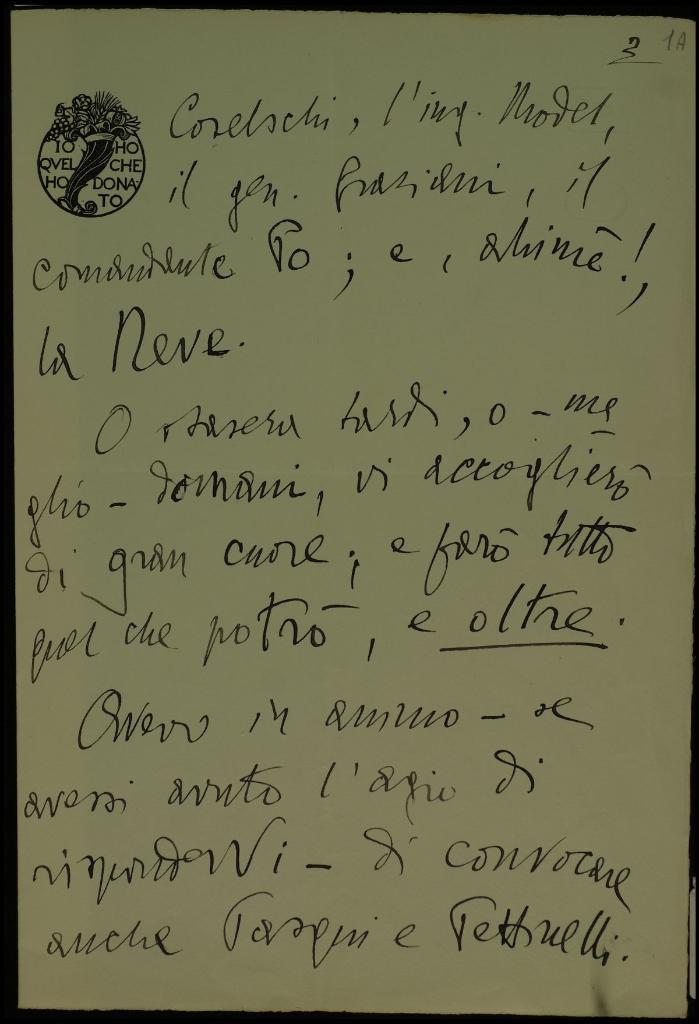 3 1A
IO HO
QVEL CHE
HO DONA
TO
Coselschi, l'ing. Model,
il gen. Graziani, il
comandante Po; e, ahimè!,
la Neve.
O stasera tardi, o - me
glio - domani, vi accoglierò
di gran cuore; e farò tutto
quel che potrò, e oltre.
Avevo in animo - se
avessi avuto l'agio di
risponderVi - di convocare
anche Pasqui e Pettinelli.